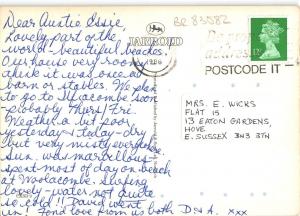 Dear Auntie Essie,
Lovely part of the
world - beautiful beaches.
Our house very roomy
think it was once a
barn or stables. We plan
to go to Ilfracombe soon
possibly Thurs/Fri.
Weather a bit poor
yesterday & today - dry
but very misty everywhere.
Sun. was marvellous -
spent most of day on beach
at Woolacombe. Surfing
lovely - water not quite
so cold!! David went
in! Fond love from us both D & A. xxx
JARROLD
BR 83582
1986
POSTCODE IT —
MRS. E. WICKS
FLAT 15
13 EATON GARDENS,
HOVE.
E. SUSSEX BN3 3TN